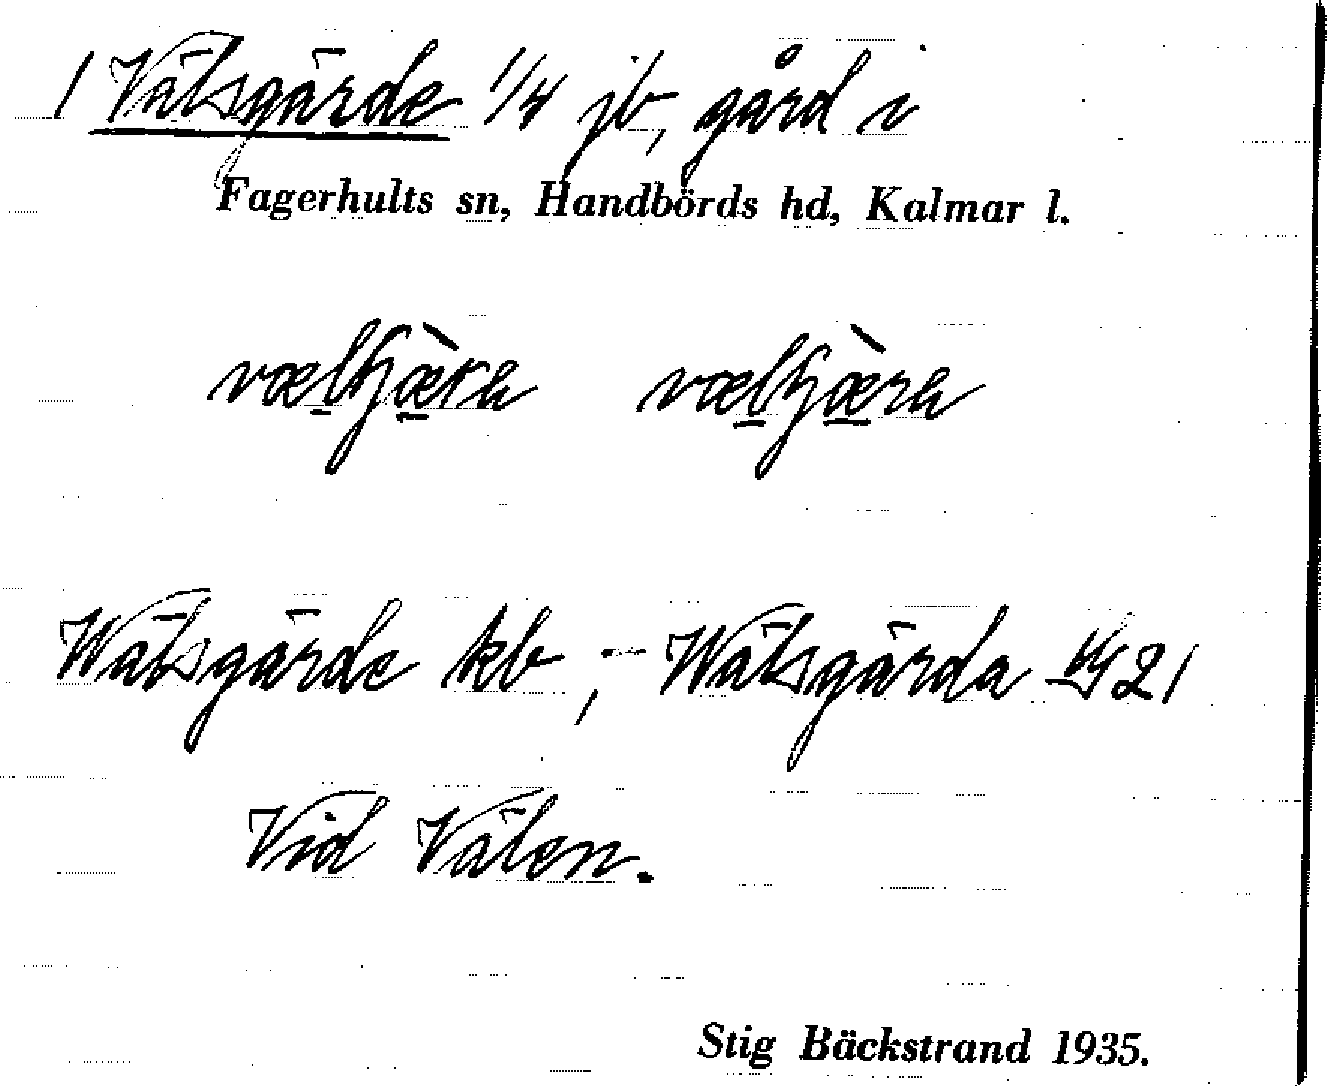 1 Vätsgärde 1/4 jb, gård i
Fagerhults sn, Handbörds hd, Kalmar l.
Wätsgärde kb, - Wätsgärda 21
Vid Välen.
Stig Bäckstrand 1935.